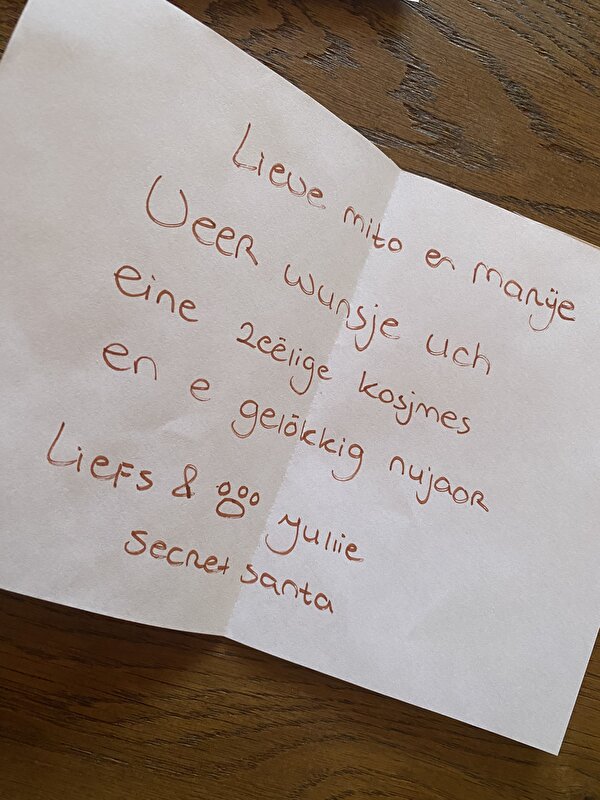 Lieve mito en marije
Veer wunsje uch
eine zeëlige kosjmes
en e gelökkig nujaor
Liefs & 🐾 Yuliie
secret santa